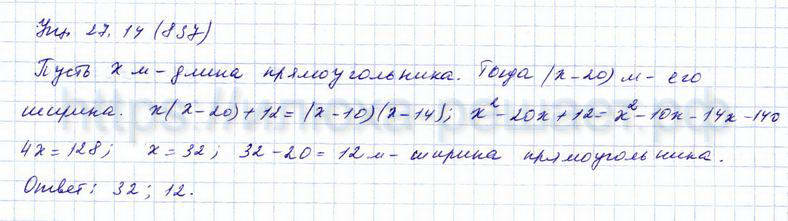 Упр. 27.14 (837)
Пусть x м - длина прямоугольника. Тогда (x-20) м - его
ширина. x(x-20)+12=(x-10)(x-14); x²-20x+12=x²-10x-14x-140
4x=128; x=32; 32-20=12 м - ширина прямоугольника.
Ответ: 32; 12.